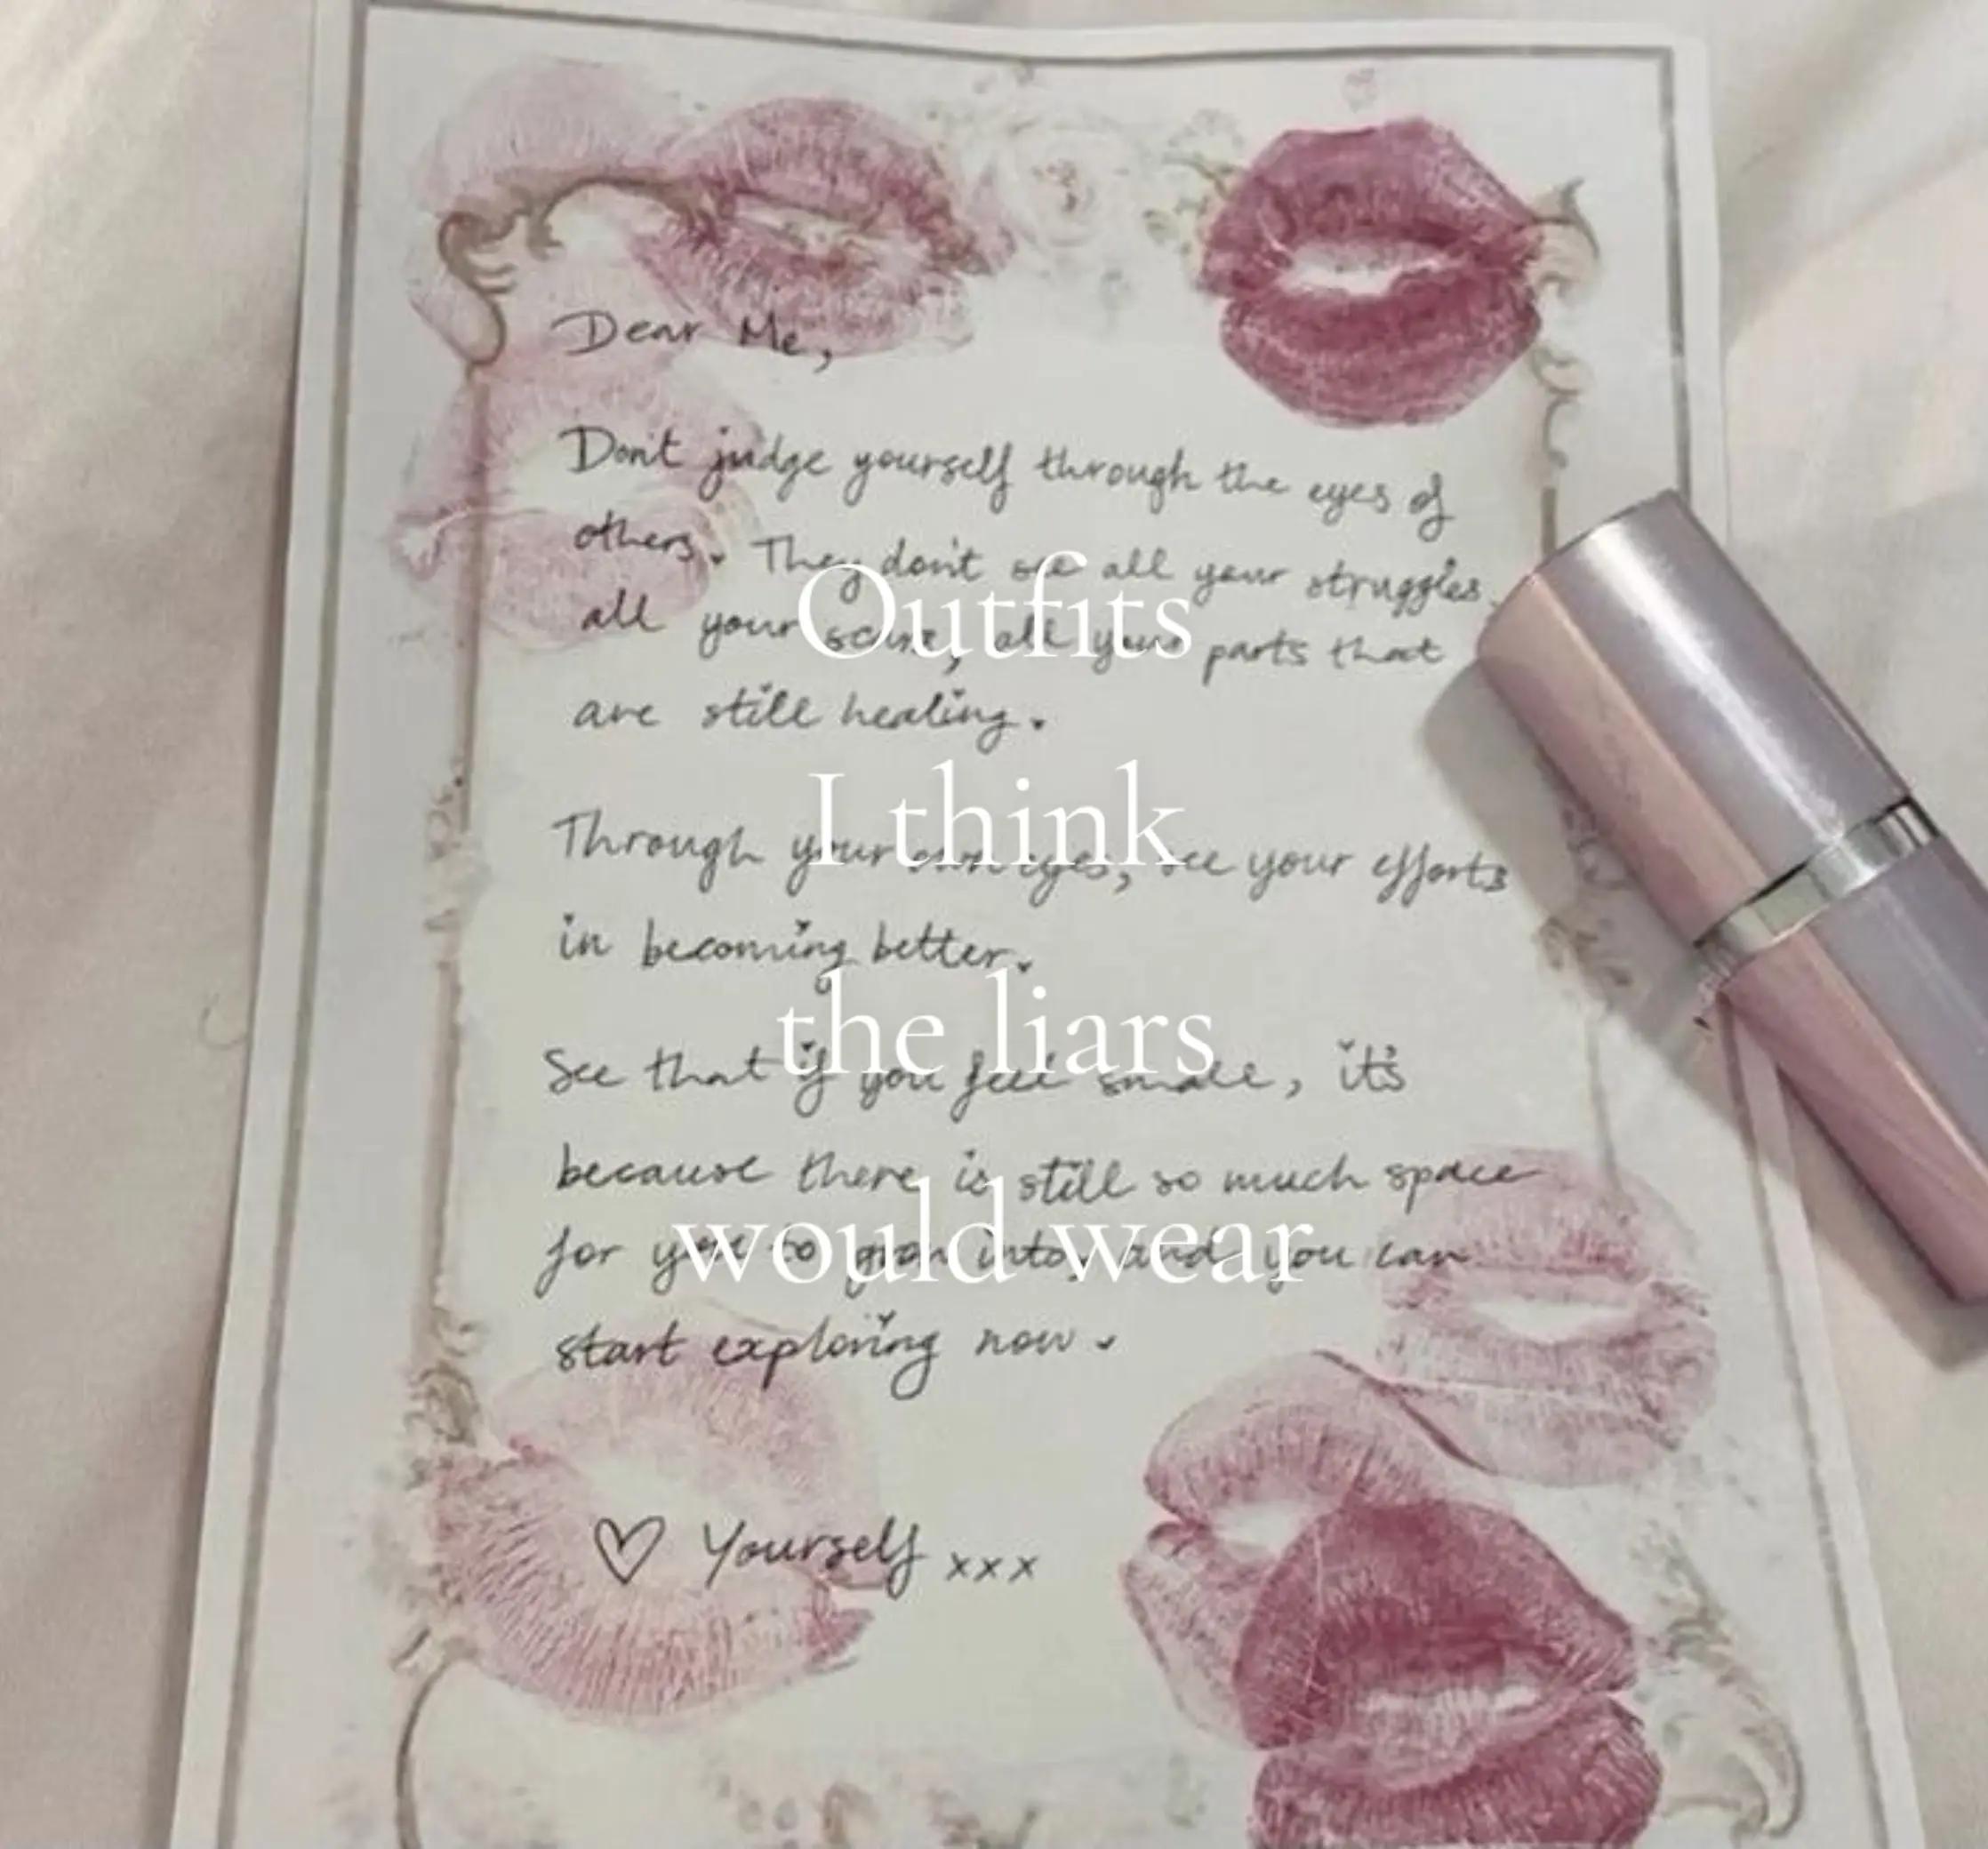 Dear Me,
Don't judge yourself through the eyes of
others. They don't see all your struggles,
all your scars, all your parts that
are still healing.
Through your own eyes, see your efforts
in becoming better.
See that if you feel small, it's
because there is still so much space
for you to grow into, and you can
start exploring now.
♡ Yourself xxx
Outfits
I think
the liars
would wear